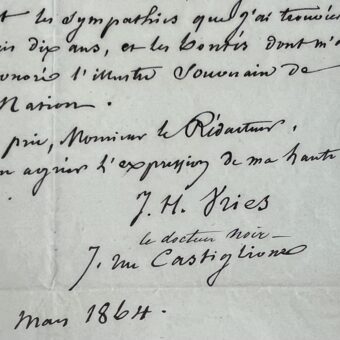 t les sympathies que j'ai trouvées
is dix ans, et les bontés dont m'a
onoré l'illustre Souverain de
Nation.
prie, Monsieur le Rédacteur,
n agréer l'expression de ma haute
J. H. Vries
le docteur noir
7. rue Castiglione
Mars 1864.